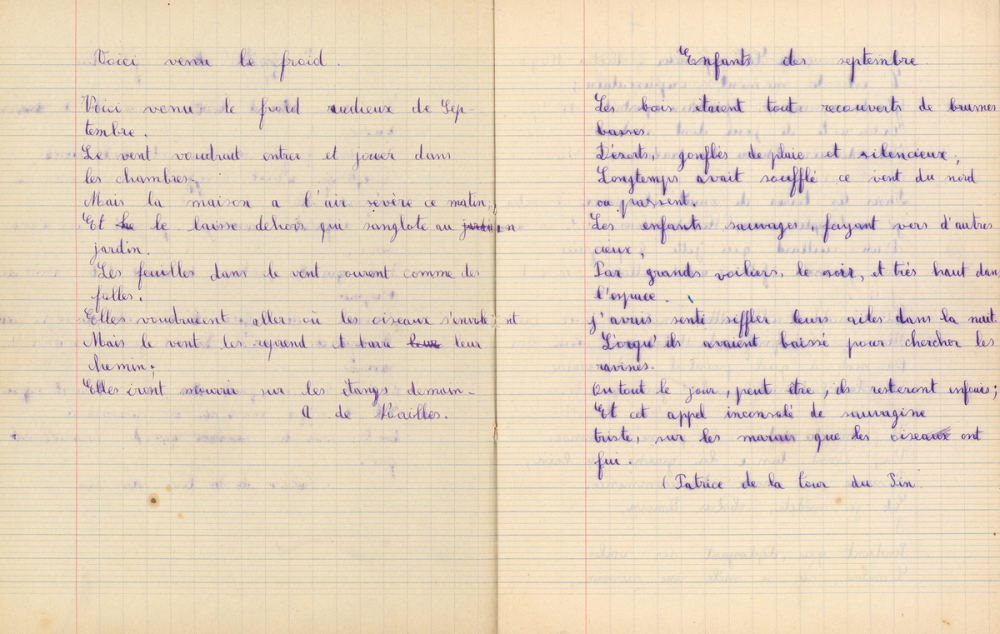 Voici venu le froid.
Voici venu le froid radieux de Sep-
tembre.
Le vent voudrait entrer et jouer dans
les chambres;
Mais la maison a l'air sévère ce matin,
Et le laisse dehors qui sanglote au
jardin.
Les feuilles dans le vent courent comme des
folles.
Elles voudraient aller où les oiseaux s'envolent
Mais le vent les reprend et barre leur
chemin;
Elles iront mourir sur les étangs demain.
A de Noailles.
Enfants des septembre
Les bois étaient tout recouverts de brumes
basses.
Déserts, gonflés de pluie et silencieux;
Longtemps avait soufflé ce vent du nord
où passent
Les enfants sauvages fuyant vers d'autres
cieux,
Par grands voiliers, le soir, et très haut dans
l'espace.
j'avais senti siffler leurs ailes dans la nuit
Lorqu'ils avaient baissé pour chercher les
ravines.
Ou tout le jour, peut être, ils resteront enfouis;
Et cet appel inconsolé de sauvagine
triste, sur les marais que les oiseaux ont
fui.
(Patrice de la tour du Pin